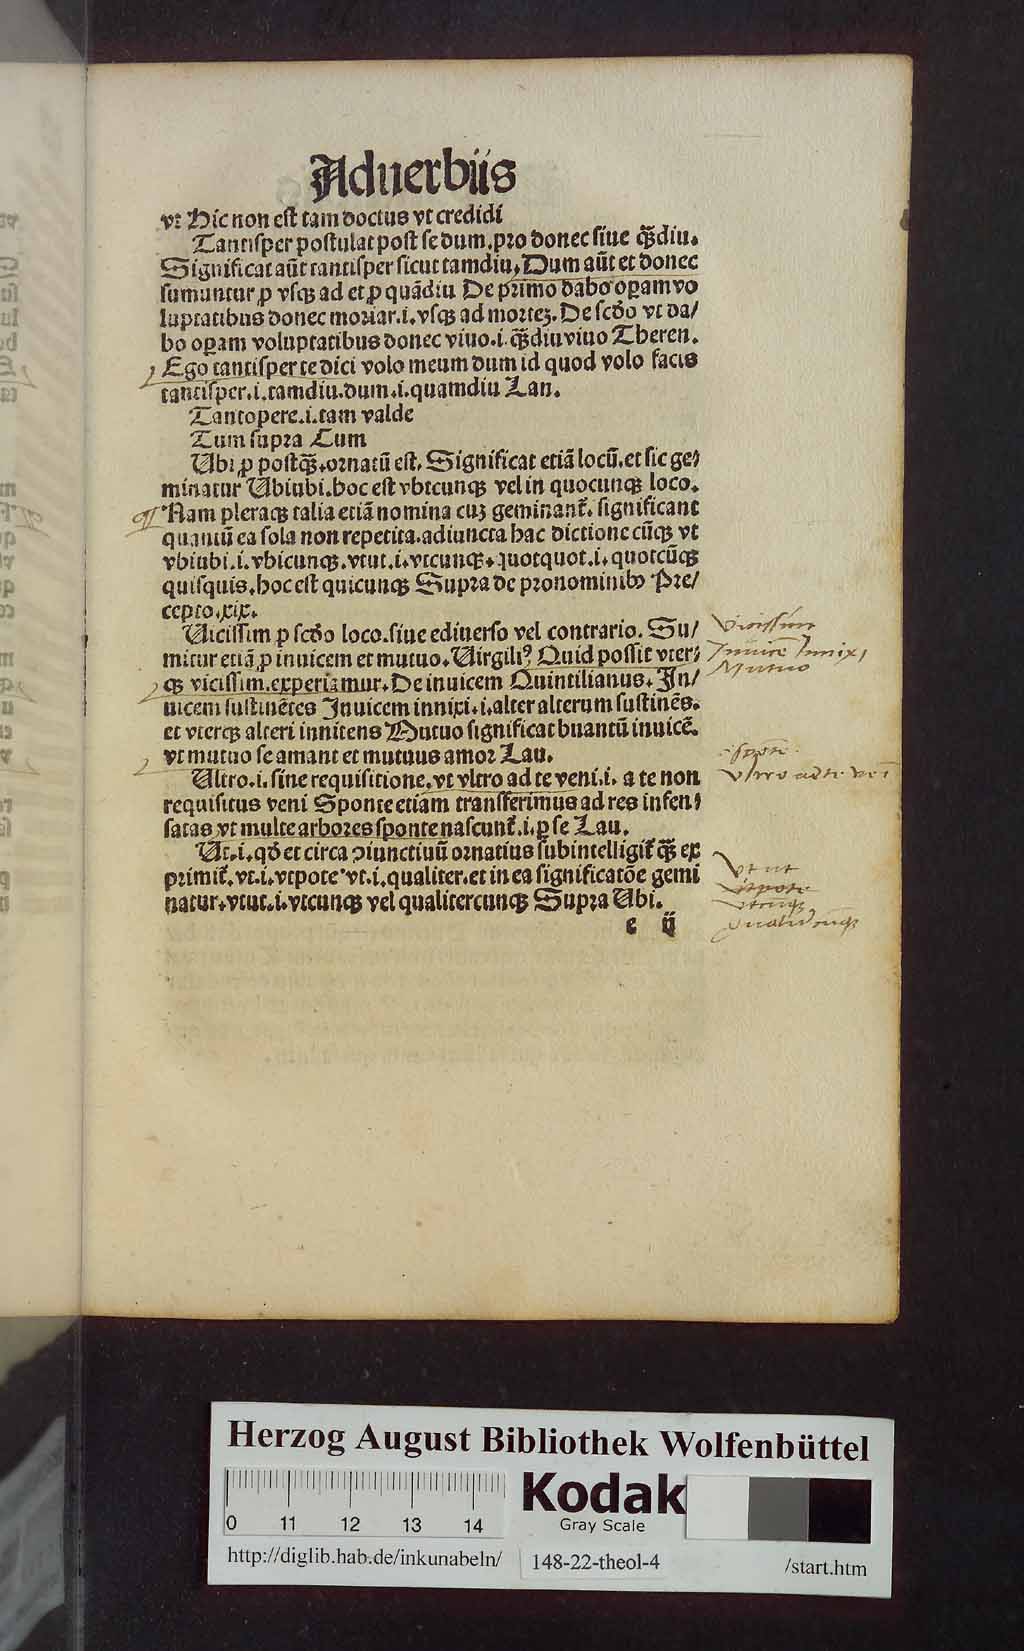 Aduerbiis
vt Hic non est tam doctus vt credidi
Tantisper postulat post se dum, pro donec siue qꝫ̄diu.
Significat aūt tantisper sicut tamdiu, Dum aūt et donec
sumuntur ꝑ vsqꝫ ad et ꝑ quādiu De primo dabo oꝑam vo
luptatibus donec moriar.i.vsqꝫ ad morteꝫ. De scd̄o vt da/
bo oꝑam voluptatibus donec viuo.i.qꝫ̄diu viuo Theren.
Ego tantisper te dici volo meum dum id quod volo facis
tantisper.i.tamdiu.dum.i.quamdiu Lan.
Tantopere.i.tam valde
Tum supra Cum
Ubi ꝑ postqꝫ̄.ornatū est. Significat etiā locū.et sic ge/
minatur Ubiubi.hoc est vbicunqꝫ vel in quocunqꝫ loco.
Nam pleraqꝫ talia etiā nomina cuꝫ geminant᷑. significant
quantū ea sola non repetita.adiuncta hac dictione cūqꝫ vt
vbiubi.i.vbicunqꝫ.vtut.i.vtcunqꝫ.quotquot.i.quotcūqꝫ
quisquis.hoc est quicunqꝫ Supra de pronominibꝰ Pre/
cepto.xix.
Uicissim ꝑ scd̄o loco.siue ediuerso vel contrario. Su/
mitur etiā ꝑ inuicem et mutuo. Uirgiliꝰ Quid possit vter/
qꝫ vicissim.experiamur. De inuicem Quintilianus. In/
uicem sustinētes Inuicem innixi.i.alter alterum sustinēs.
et vterqꝫ alteri innitens Mutuo significat quantū inuicē.
vt mutuo se amant et mutuus amor Lau.
Ultro.i.sine requisitione.vt vltro ad te veni.i. a te non
requisitus veni Sponte etiam transferimus ad res insen/
satas vt multe arbores sponte nascunt᷑.i.ꝑ se Lau.
Ut.i.qd̄ et circa ꝯiunctiuū ornatius subintelligit᷑ qꝫ̄ ex
primit᷑.vt.i.vtpote vt.i.qualiter.et in ea significatōe gemi
natur.vtut.i.vtcunqꝫ vel qualitercunqꝫ Supra Ubi.
e ij
Vicissim
Inuicē Innixi
Mutuo
sponte
Vltro ad te veni
Vtut
Vtpote
Vtcunqꝫ
Herzog August Bibliothek Wolfenbüttel
0 11 12 13 14
Kodak
Gray Scale
http://diglib.hab.de/inkunabeln/ 148-22-theol-4 /start.htm